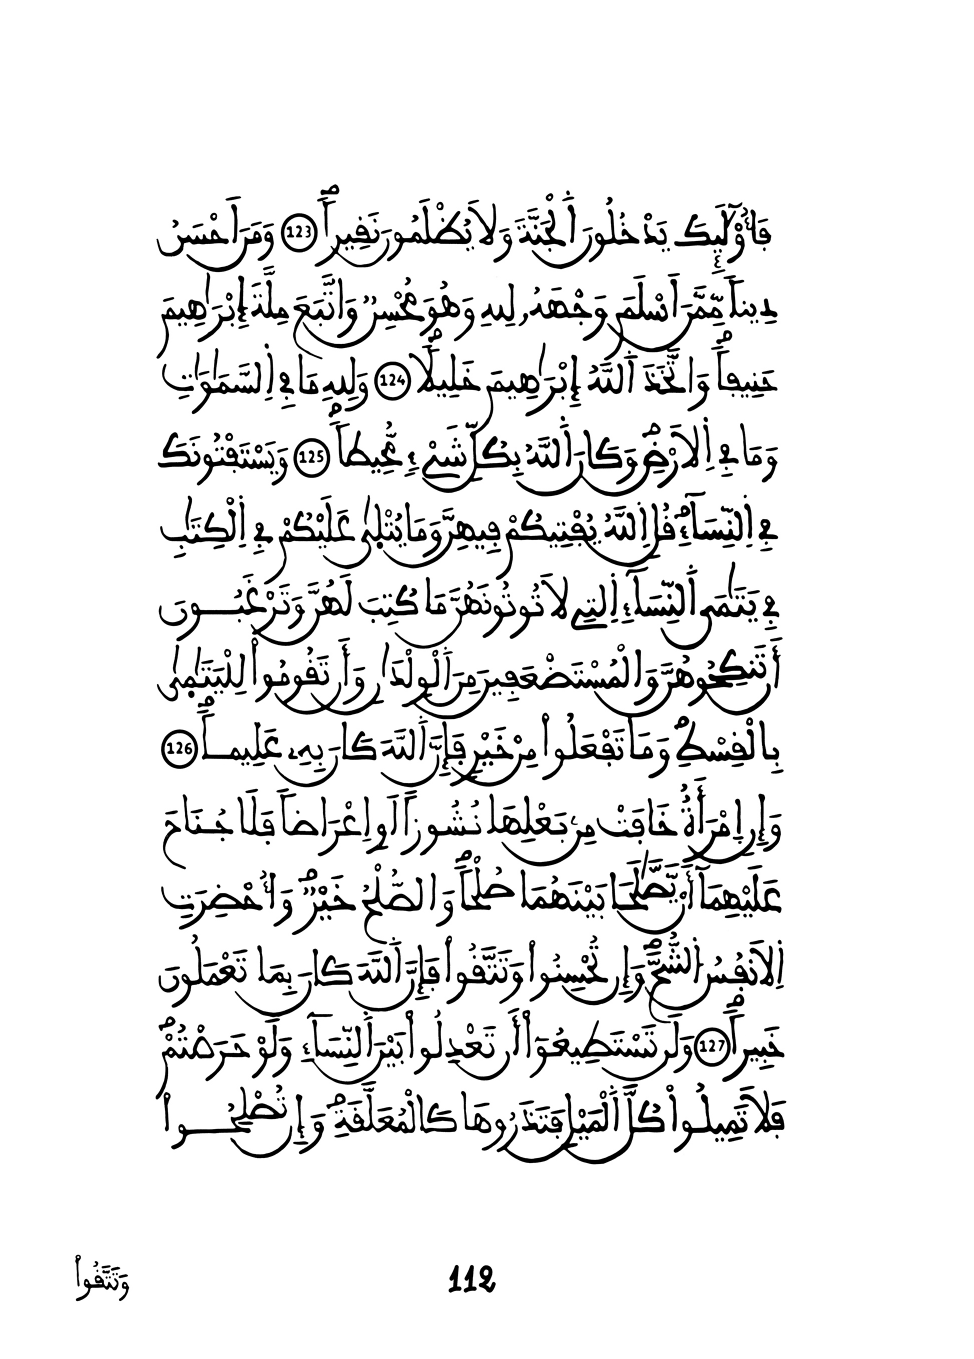 فَأُوْلَٰٓئِكَ يَدْخُلُونَ اَ۬لْجَنَّةَ وَلَا يُظْلَمُونَ نَقِيراًۖ 123 وَمَنَ اَحْسَنُ
دِيناٗ مِّمَّنَ اَسْلَمَ وَجْهَهُۥ لِلهِ وَهُوَ مُحْسِنٞ وَاتَّبَعَ مِلَّةَ إِبْرَٰهِيمَ
حَنِيفاٗۖ وَاتَّخَذَ اَ۬للَّهُ إِبْرَٰهِيمَ خَلِيلاٗۖ 124 وَلِلهِ مَا فِے اِ۬لسَّمَٰوَٰتِ
وَمَا فِے اِ۬لَارْضِۖ وَكَانَ اَ۬للَّهُ بِكُلِّ شَےْءٖ مُّحِيطاٗۖ 125 وَيَسْتَفْتُونَكَ
فِے اِ۬لنِّسَآءِۖ قُلِ اِ۬للَّهُ يُفْتِيكُمْ فِيهِنَّ وَمَا يُتْلَىٰ عَلَيْكُمْ فِے اِ۬لْكِتَٰبِ
فِے يَتَٰمَى اَ۬لنِّسَآءِ اِ۬لتِے لَا تُوتُونَهُنَّ مَا كُتِبَ لَهُنَّ وَتَرْغَبُونَ
أَن تَنكِحُوهُنَّ وَالْمُسْتَضْعَفِينَ مِنَ اَ۬لْوِلْدَٰنِ وَأَن تَقُومُواْ لِلْيَتَٰمَىٰ
بِالْقِسْطِۖ وَمَا تَفْعَلُواْ مِنْ خَيْرٖ فَإِنَّ اَ۬للَّهَ كَانَ بِهِۦ عَلِيماٗۖ 126
وَإِنِ اِ۪مْرَأَةٌ خَافَتْ مِنۢ بَعْلِهَا نُشُوزاً اَوِ اِعْرَاضاٗ فَلَا جُنَاحَ
عَلَيْهِمَآ أَنْ يَّصَّٰلَحَا بَيْنَهُمَا صُلْحاٗۖ وَالصُّلْحُ خَيْرٞۖ وَأُحْضِرَتِ
اِ۬لَانفُسُ اُ۬لشُّحَّۖ وَإِن تُحْسِنُواْ وَتَتَّقُواْ فَإِنَّ اَ۬للَّهَ كَانَ بِمَا تَعْمَلُونَ
خَبِيراٗۖ 127 وَلَن تَسْتَطِيعُوٓاْ أَن تَعْدِلُواْ بَيْنَ اَ۬لنِّسَآءِ وَلَوْ حَرَصْتُمْۖ
فَلَا تَمِيلُواْ كُلَّ اَ۬لْمَيْلِ فَتَذَرُوهَا كَالْمُعَلَّقَةِۖ وَإِن تُصْلِحُواْ
وَتَتَّقُواْ
112